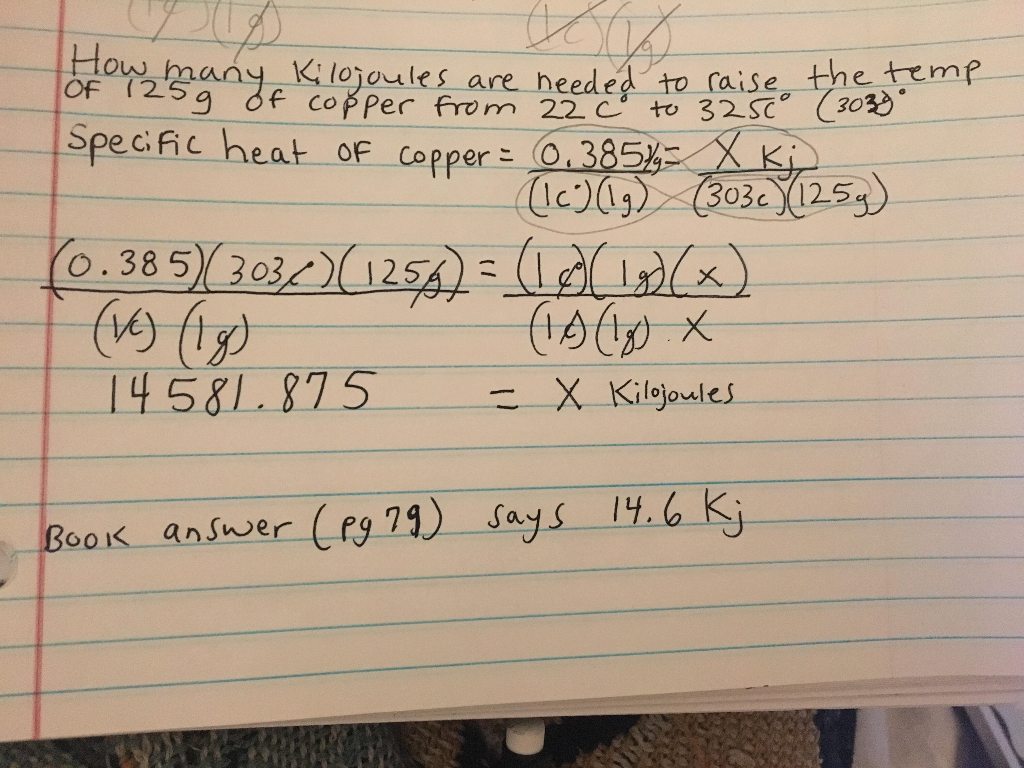 (1g)
(1c)(1g)
How many Kilojoules are needed to raise the temp
of 125g of copper from 22 C° to 325c° (303
Specific heat of copper = 0.385 = X Kj
(1c°)(1g) (303c)(125g)
(0.385)(303c)(125g) = (1c°)(1g)(x)
(1c) (1g) (1c)(1g) . X
14581.875 = X Kilojoules
Book answer (pg 79) says 14.6 Kj